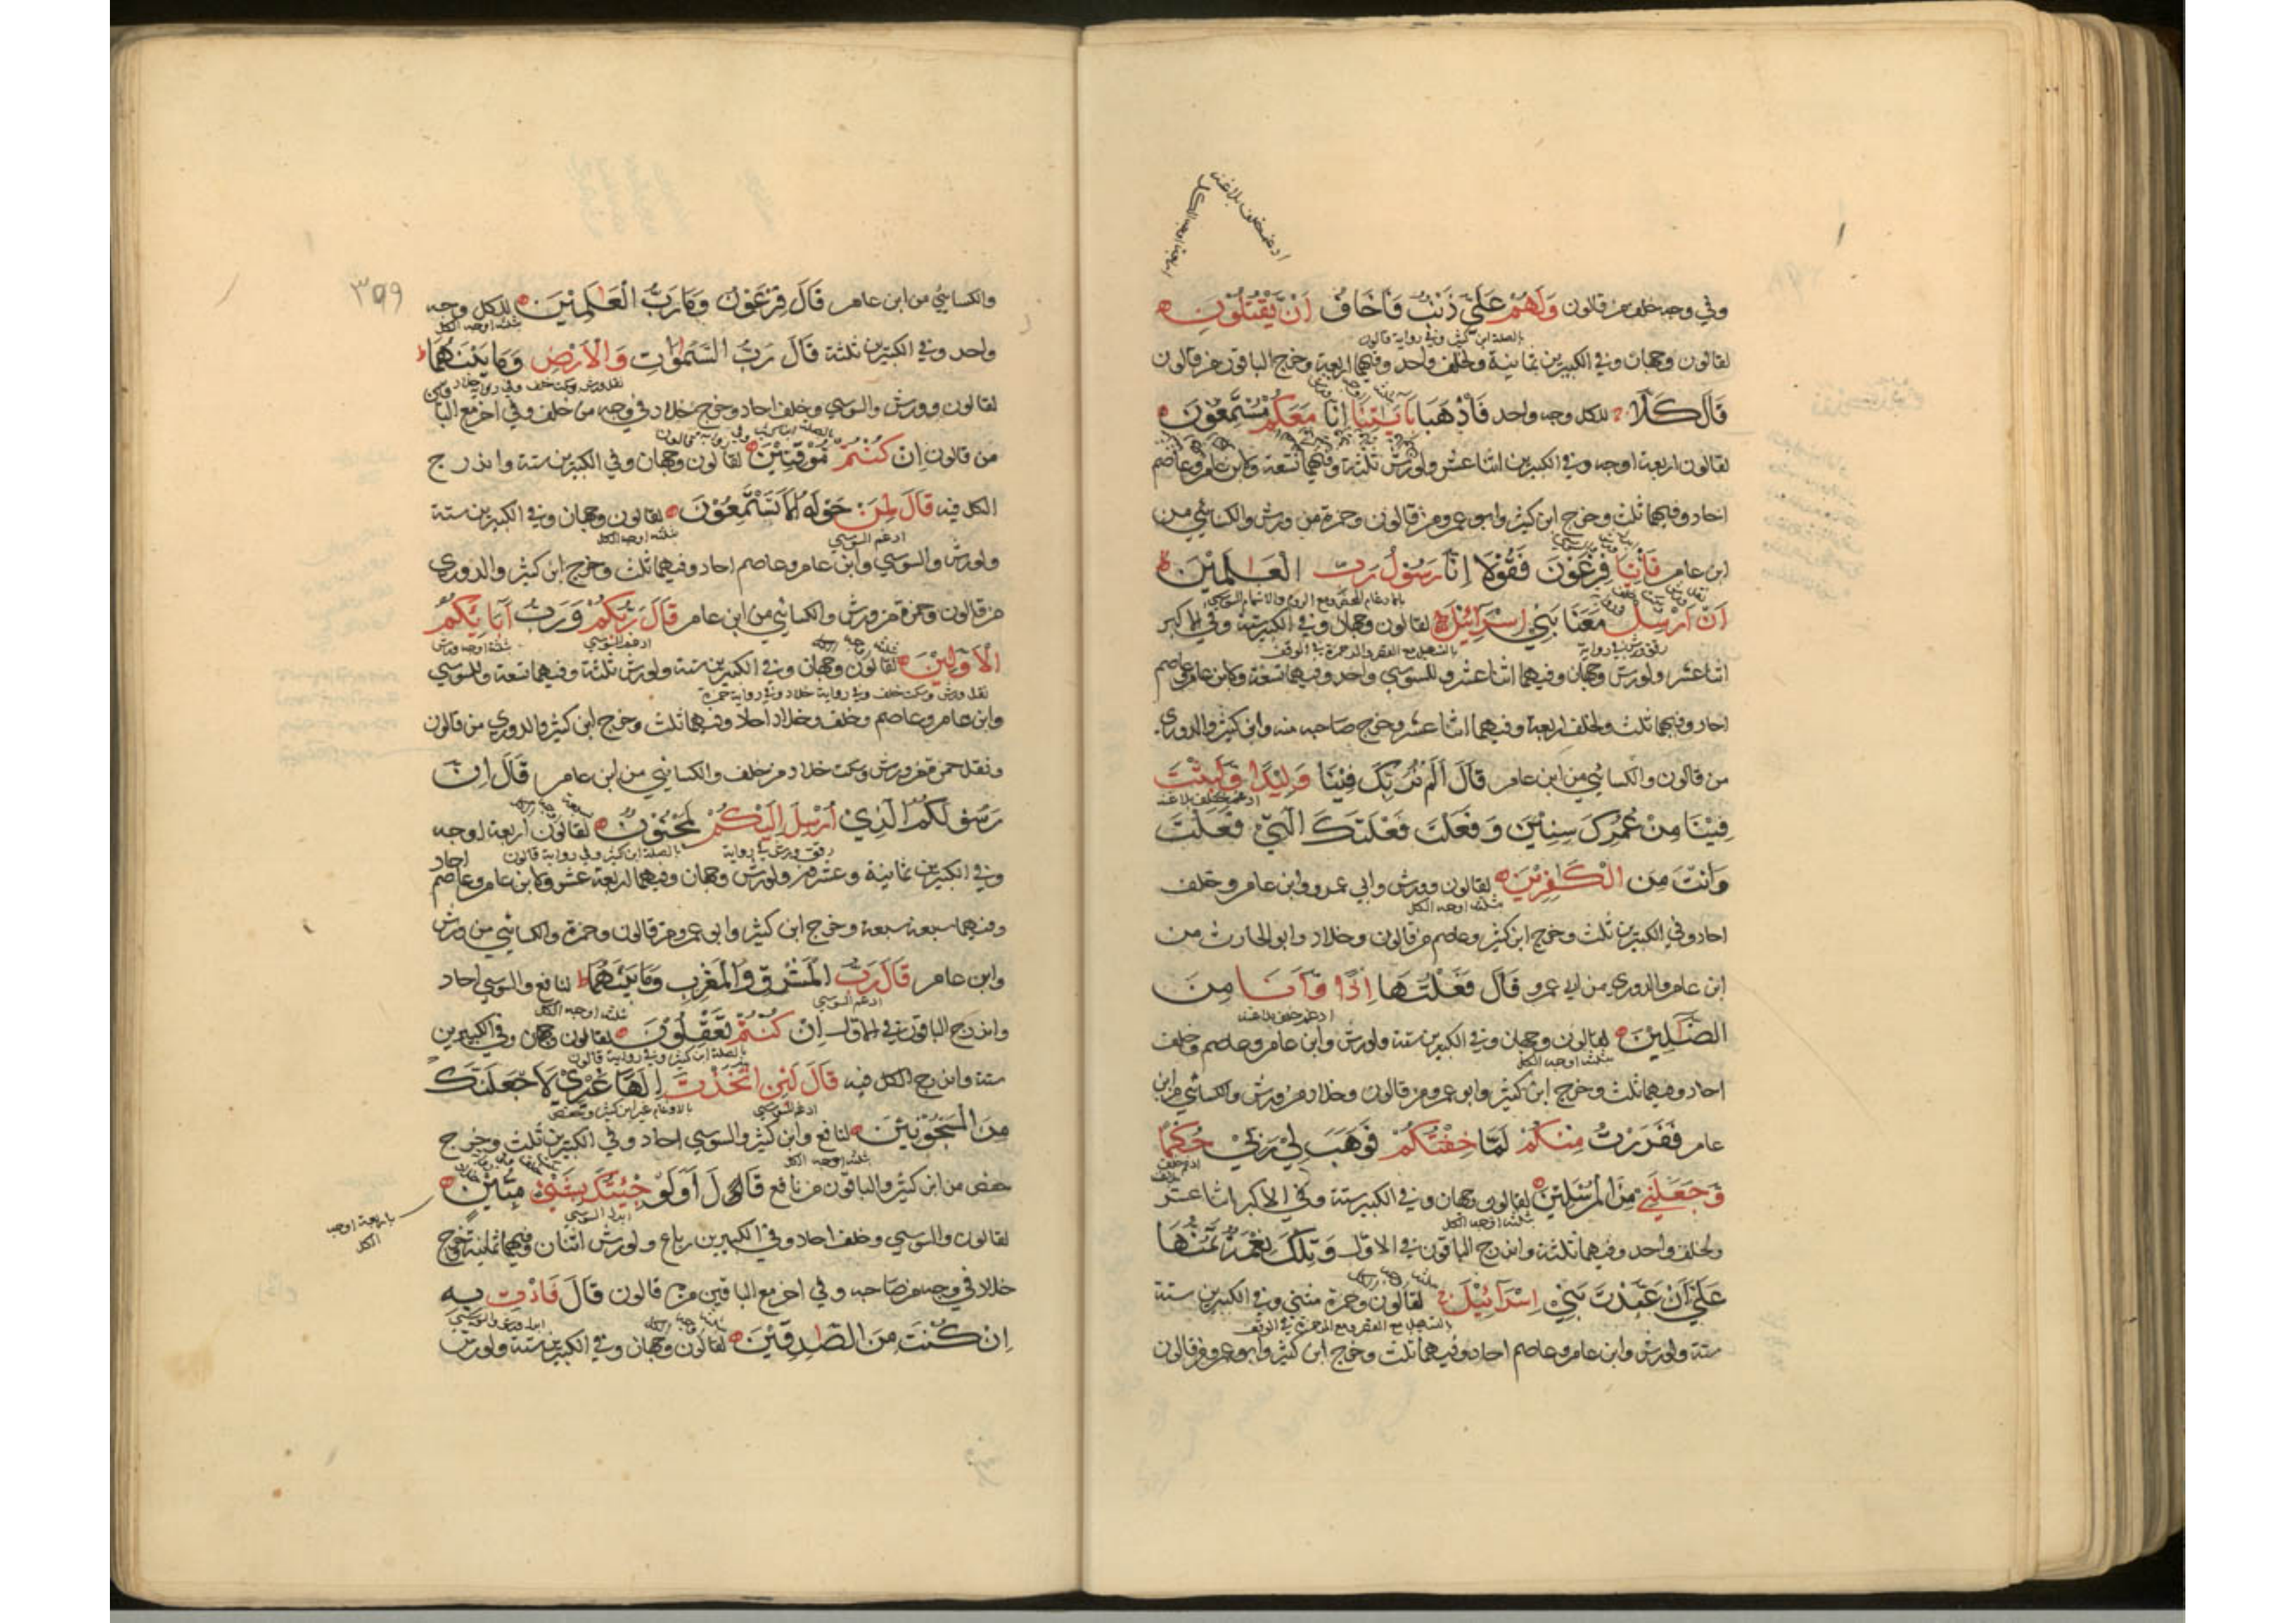 وفي وجه خلف من قالون وَلَهُمْ عَلَيَّ ذَنْبٌ فَأَخَافُ أَنْ يَقْتُلُونِ
بالصلة ابن كثير وفي رواية قالون
لقالون وجهان وفي الكبيرين ثمانية ولخلف واحد وفيهما اربعة وخرج الباقون من قالون
قَالَ كَلَّا للكل وجه واحد فَاذْهَبَا بِآيَاتِنَا إِنَّا مَعَكُمْ مُسْتَمِعُونَ
لقالون اربعة اوجه وفي الكبيرين اثنا عشر ولورش ثلثة وفيهما تسعة وكابن عامر وعاصم
احاد وفيهما ثلث وخرج ابن كثير وابو عمرو من قالون وحمزة من ورش والكسائي من
ابن عامر فَأْتِيَا فِرْعَوْنَ فَقُولَا إِنَّا رَسُولُ رَبِّ الْعَالَمِينَ
أَنْ أَرْسِلْ مَعَنَا بَنِي إِسْرَائِيلَ لقالون وجهان وفي الكبير ستة وفي الاكبر
بالتسهيل مع القصر والمد حمزة في الوقف
اثنا عشر ولورش وجهان وفيهما اثنا عشر وللسوسي واحد وفيهما تسعة وكابن عامر وعاصم
احاد وفيهما ثلث ولخلف اربعة وفيهما اثنا عشر وخرج صاحبه منه وابن كثير والدوري
من قالون والكسائي من ابن عامر قَالَ أَلَمْ نُرَبِّكَ فِينَا وَلِيدًا وَلَبِثْتَ
ادغم خلف بلا غنة
فِينَا مِنْ عُمُرِكَ سِنِينَ وَفَعَلْتَ فَعْلَتَكَ الَّتِي فَعَلْتَ
وَأَنْتَ مِنَ الْكَافِرِينَ لقالون وورش وابي عمرو وابن عامر وخلف
ثلثة اوجه الكل
احاد وفي الكبيرين ثلث وخرج ابن كثير وعاصم من قالون وخلاد وابو الحارث من
ابن عامر والدوري من ابي عمرو قَالَ فَعَلْتُهَا إِذًا وَأَنَا مِنَ
ادغم خلف بلا غنة
الضَّالِّينَ لقالون وجهان وفي الكبيرين ستة ولورش وابن عامر وعاصم وخلف
ثلثة اوجه الكل
احاد وفيهما ثلث وخرج ابن كثير وابو عمرو من قالون وخلاد من ورش والكسائي من ابن
عامر فَفَرَرْتُ مِنْكُمْ لَمَّا خِفْتُكُمْ فَوَهَبَ لِي رَبِّي حُكْمًا
وَجَعَلَنِي مِنَ الْمُرْسَلِينَ لقالون وجهان وفي الكبير ستة وفي الاكبر اثنا عشر
ثلثة اوجه الكل
ولخلف واحد وفيهما ثلثة واندرج الباقون في الاول وَتِلْكَ نِعْمَةٌ تَمُنُّهَا
عَلَيَّ أَنْ عَبَّدْتَ بَنِي إِسْرَائِيلَ لقالون وحمزة مثنى وفي الكبيرين ستة
بالتسهيل مع القصر ومع المد حمزة في الوقف
ستة ولورش وابن عامر وعاصم احاد وفيهما ثلث وخرج ابن كثير وابو عمرو من قالون
٣٩٩
والكسائي من ابن عامر قَالَ فِرْعَوْنُ وَمَا رَبُّ الْعَالَمِينَ للكل وجه
ثلثة اوجه الكل
واحد وفي الكبيرين ثلثة قَالَ رَبُّ السَّمَوَاتِ وَالْأَرْضِ وَمَا بَيْنَهُمَا
لقالون وورش والسوسي وخلف احاد وخرج خلاد في وجه من خلف وفي اخر مع الباقين
من قالون إِنْ كُنْتُمْ مُوقِنِينَ لقالون وجهان وفي الكبيرين ستة واندرج
الكل فيه قَالَ لِمَنْ حَوْلَهُ أَلَا تَسْتَمِعُونَ لقالون وجهان وفي الكبيرين ستة
ادغم السوسي ثلثة اوجه الكل
ولورش والسوسي وابن عامر وعاصم احاد وفيهما ثلث وخرج ابن كثير والدوري
من قالون وحمزة من ورش والكسائي من ابن عامر قَالَ رَبُّكُمْ وَرَبُّ آبَائِكُمُ
ادغم السوسي ثلثة اوجه ورش
الْأَوَّلِينَ لقالون وجهان وفي الكبيرين ستة ولورش ثلثة وفيهما تسعة وللسوسي
نقل ورش وسكت خلف وفي رواية خلاد وفي رواية حمزة
وابن عامر وعاصم وخلف وخلاد احاد وفيهما ثلث وخرج ابن كثير والدوري من قالون
ونقل حمزة من ورش وسكت خلاد من خلف والكسائي من ابن عامر قَالَ إِنَّ
رَسُولَكُمُ الَّذِي أُرْسِلَ إِلَيْكُمْ لَمَجْنُونٌ لقالون اربعة اوجه
رقق ورش في رواية بالصلة ابن كثير وفي رواية قالون
وفي الكبيرين ثمانية وعشرة ولورش وجهان وفيهما اربعة عشر وكابن عامر وعاصم احاد
وفيهما سبعة سبعة وخرج ابن كثير وابو عمرو من قالون وحمزة والكسائي من ورش
وابن عامر قَالَ رَبُّ الْمَشْرِقِ وَالْمَغْرِبِ وَمَا بَيْنَهُمَا لنافع والسوسي احاد
ادغم السوسي
واندرج الباقون في الاول إِنْ كُنْتُمْ تَعْقِلُونَ لقالون وجهان وفي الكبيرين
بالصلة ابن كثير وفي رواية قالون
ستة واندرج الكل فيه قَالَ لَئِنِ اتَّخَذْتَ إِلَهًا غَيْرِي لَأَجْعَلَنَّكَ
ادغم السوسي بالادغام غير ابن كثير وحفص
مِنَ الْمَسْجُونِينَ لنافع وابن كثير والسوسي احاد وفي الكبيرين ثلث وخرج
ثلثة اوجه الكل
حفص من ابن كثير والباقون من نافع قَالَ أَوَلَوْ جِئْتُكَ بِشَيْءٍ مُبِينٍ
ابدل السوسي
باربعة اوجه
الكل
لقالون والسوسي وخلف احاد وفي الكبيرين رباع ولورش اثنان وفيهما ثمانية وخرج
خلاد في وجه من صاحبه وفي اخر مع الباقين من قالون قَالَ فَأْتِ بِهِ
ابدل ورش والسوسي
إِنْ كُنْتَ مِنَ الصَّادِقِينَ لقالون وجهان وفي الكبيرين ستة ولورش